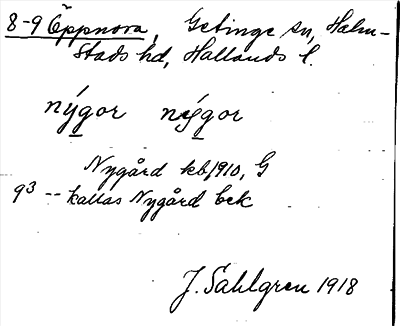 8-9 Öppnora, Getinge sn, Halm-
stads hd, Hallands l.
nýgor nýgor
Nygård kb 1910, G
9³ -- kallas Nygård bck
J. Sahlgren 1918